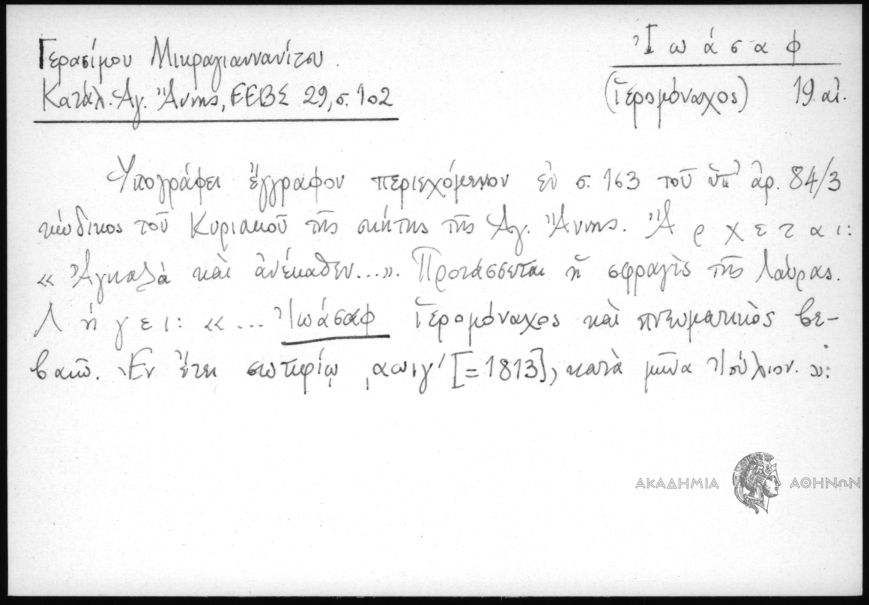 Γερασίμου Μικραγιαννανίτου.
Κατάλ. Ἁγ. Ἄννης, ΕΕΒΣ 29, σ. 102
Ἰωάσαφ
(Ἱερομόναχος) 19. αἰ.
Ὑπογράφει ἔγγραφον περιεχόμενον ἐν σ. 163 τοῦ ὑπ' ἀρ. 84/3
κώδικος τοῦ Κυριακοῦ τῆς σκήτης τῆς Ἁγ. Ἄννης. Ἄρχεται:
« Ἀγκαλὰ καὶ ἀνέκαθεν...». Προτάσσεται ἡ σφραγὶς τῆς Λαύρας.
Λήγει: «... Ἰωάσαφ Ἱερομόναχος καὶ πνευματικὸς βε-
βαιῶ. Ἐν ἔτει σωτηρίῳ ͵αωιγ' [=1813], κατὰ μῆνα Ἰούλιον.
ΑΚΑΔΗΜΙΑ ΑΘΗΝΩΝ